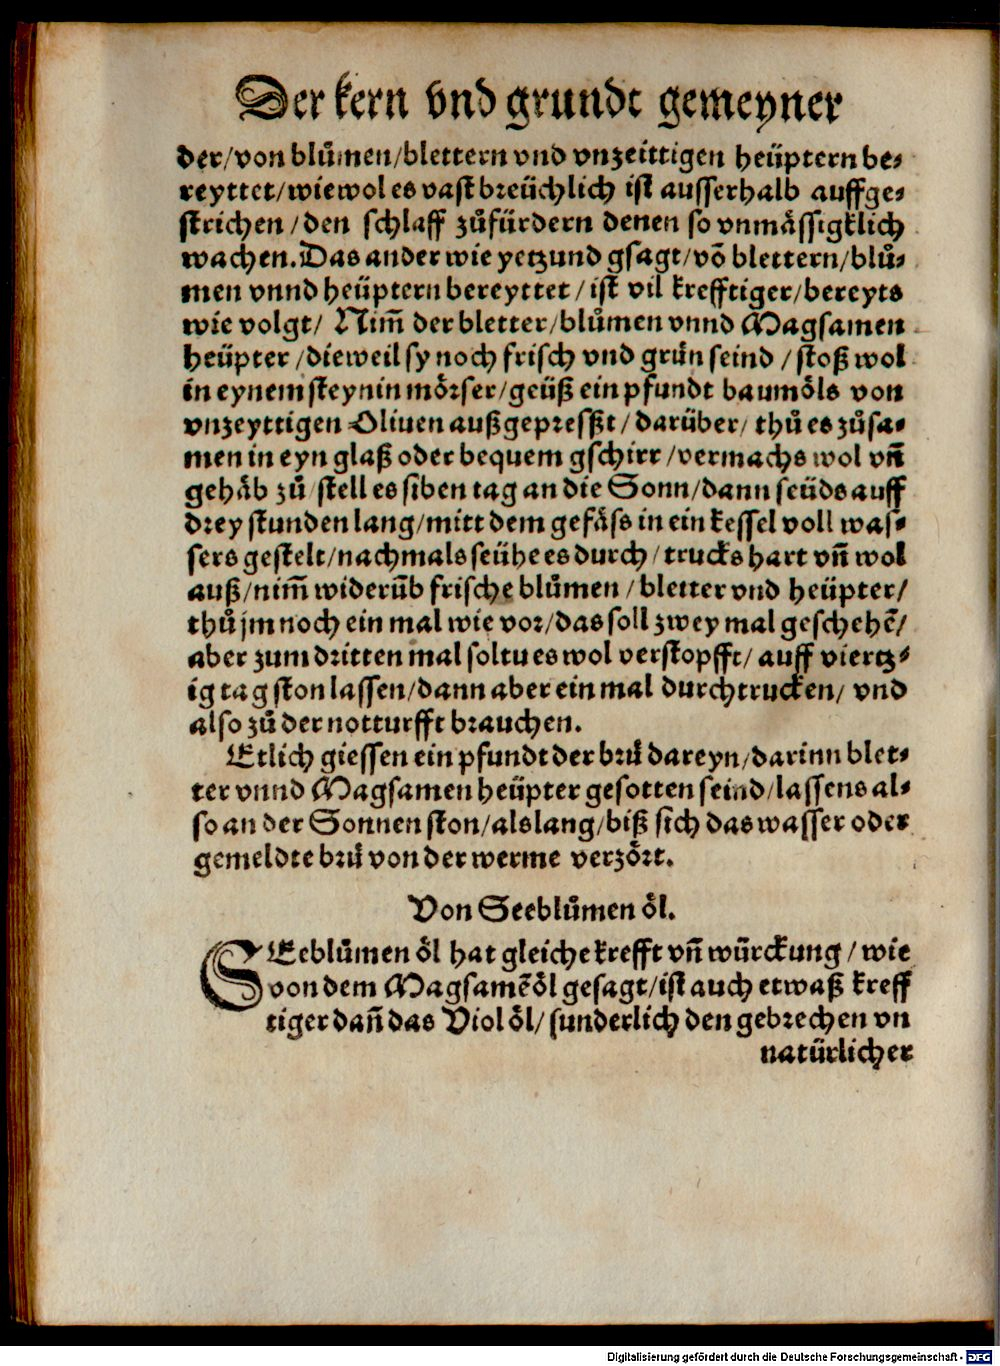 Der kern vnd grundt gemeyner
der/von blůmen/blettern vnd vnzeittigen heüptern be⸗
reyttet/wiewol es vast breüchlich ist ausserhalb auffge⸗
strichen/den schlaff zůfürdern denen so vnmässigklich
wachen. Das ander wie yetzund gsagt/võ blettern/blů⸗
men vnnd heüptern bereyttet/ist vil krefftiger/bereyts
wie volgt/ Nim̃ der bletter/blůmen vnnd Magsamen
heüpter/dieweil sy noch frisch vnd grůn seind/stoß wol
in eynem steynin mörser/geüß ein pfundt baumöls von
vnzeyttigen Oliuen außgepresßt/darüber/ thů es zůsa⸗
men in eyn glaß oder bequem gschirr/vermachs wol vñ
gehåb zů/stell es siben tag an die Sonn/dann seüds auff
drey stunden lang/mitt dem gefåss in ein kessel voll was⸗
sers gestelt/nachmals seühe es durch/trucks hart vñ wol
auß/nim̃ widerůb frische blůmen/bletter vnd heüpter/
thů jm noch ein mal wie vor/das soll zwey mal geschehẽ/
aber zum dritten mal soltu es wol verstopfft/ auff viertz⸗
ig tag ston lassen/dann aber ein mal durchtrucken/ vnd
also zů der notturfft brauchen.
Etlich giessen ein pfundt der brů dareyn/darinn blet⸗
ter vnnd Magsamen heüpter gesotten seind/lassens al⸗
so an der Sonnen ston/alslang/biß sich das wasser oder
gemeldte brů von der werme verzört.
Von Seeblůmen öl.
SEeblůmen öl hat gleiche krefft vñ würckung/wie
von dem Magsamẽ öl gesagt/ist auch etwaß kreff
tiger dañ das Viol öl/sunderlich den gebrechen vn
natürlicher
Digitalisierung gefördert durch die Deutsche Forschungsgemeinschaft - DFG